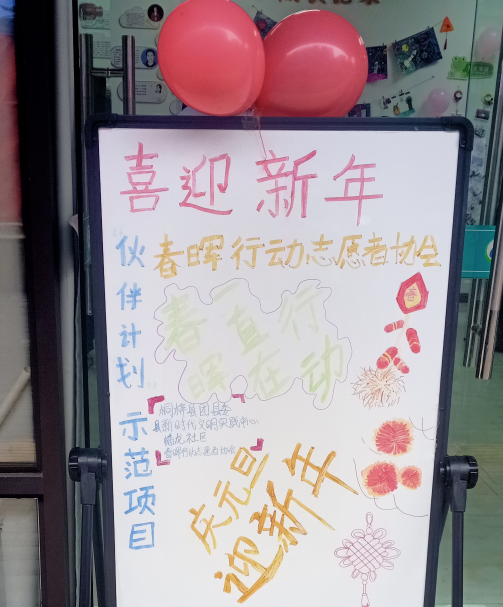 喜迎新年
"伙伴计划"示范项目
春晖行动志愿者协会
春晖一直在行动
桐梓县团县委
县新时代文明实践中心
蟠龙社区
春晖行动志愿者协会
庆元旦
迎新年
春